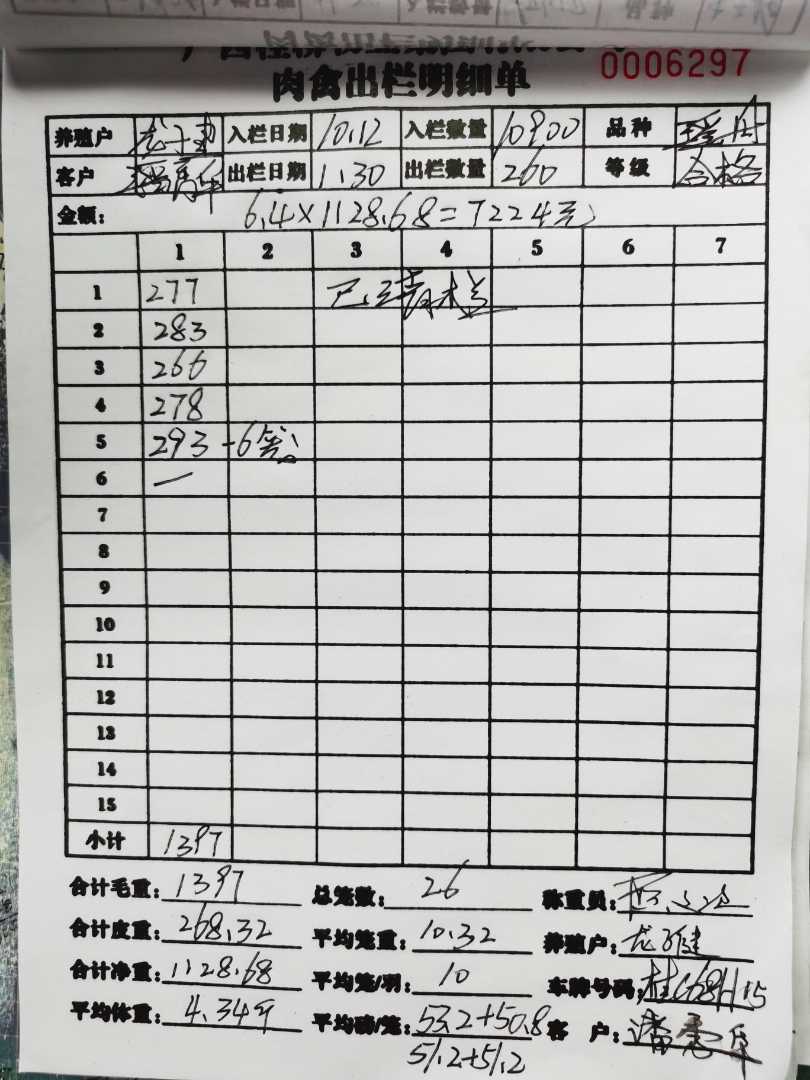 肉禽出栏明细单 0006297
养殖户 入栏日期 10.12 入栏数量 10900 品种 瑶鸡
客户 出栏日期 1.30 出栏数量 260 等级 合格
金额: 6.4×1128.68=7224元
1 2 3 4 5 6 7
1 277
2 283
3 266
4 278
5 293 -6笼
6 一
7
8
9
10
11
12
13
14
15
小计 1397
合计毛重: 1397 总笼数: 26 称重员:
合计皮重: 268.32 平均笼重: 10.32 养殖户:
合计净重: 1128.68 平均笼/羽: 10 车牌号码:
平均体重: 4.34斤 平均磅/笼: 53.2+50.8 客 户:
51.2+51.2